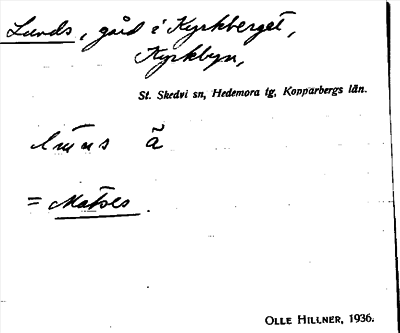 Lunds, gård i Kyrkberget,
Kyrkbyn,
St. Skedvi sn, Hedemora tg, Kopparbergs län.
ã
= Matses.
OLLE HILLNER, 1936.